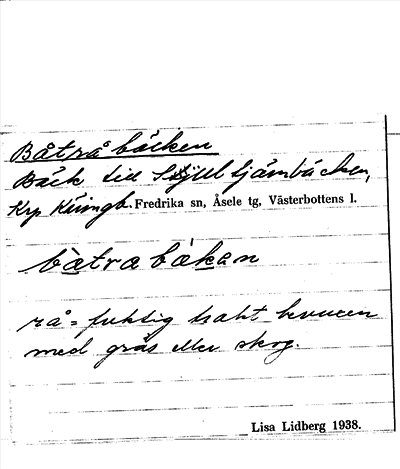 Båtråbäcken
Bäck till Stjälltjärnbäcken,
Krp Käringb. Fredrika sn, Åsele tg, Västerbottens l.
bàtrabäkan
rå = fuktig trakt bevuxen
med gräs eller skog.
Lisa Lidberg 1938.